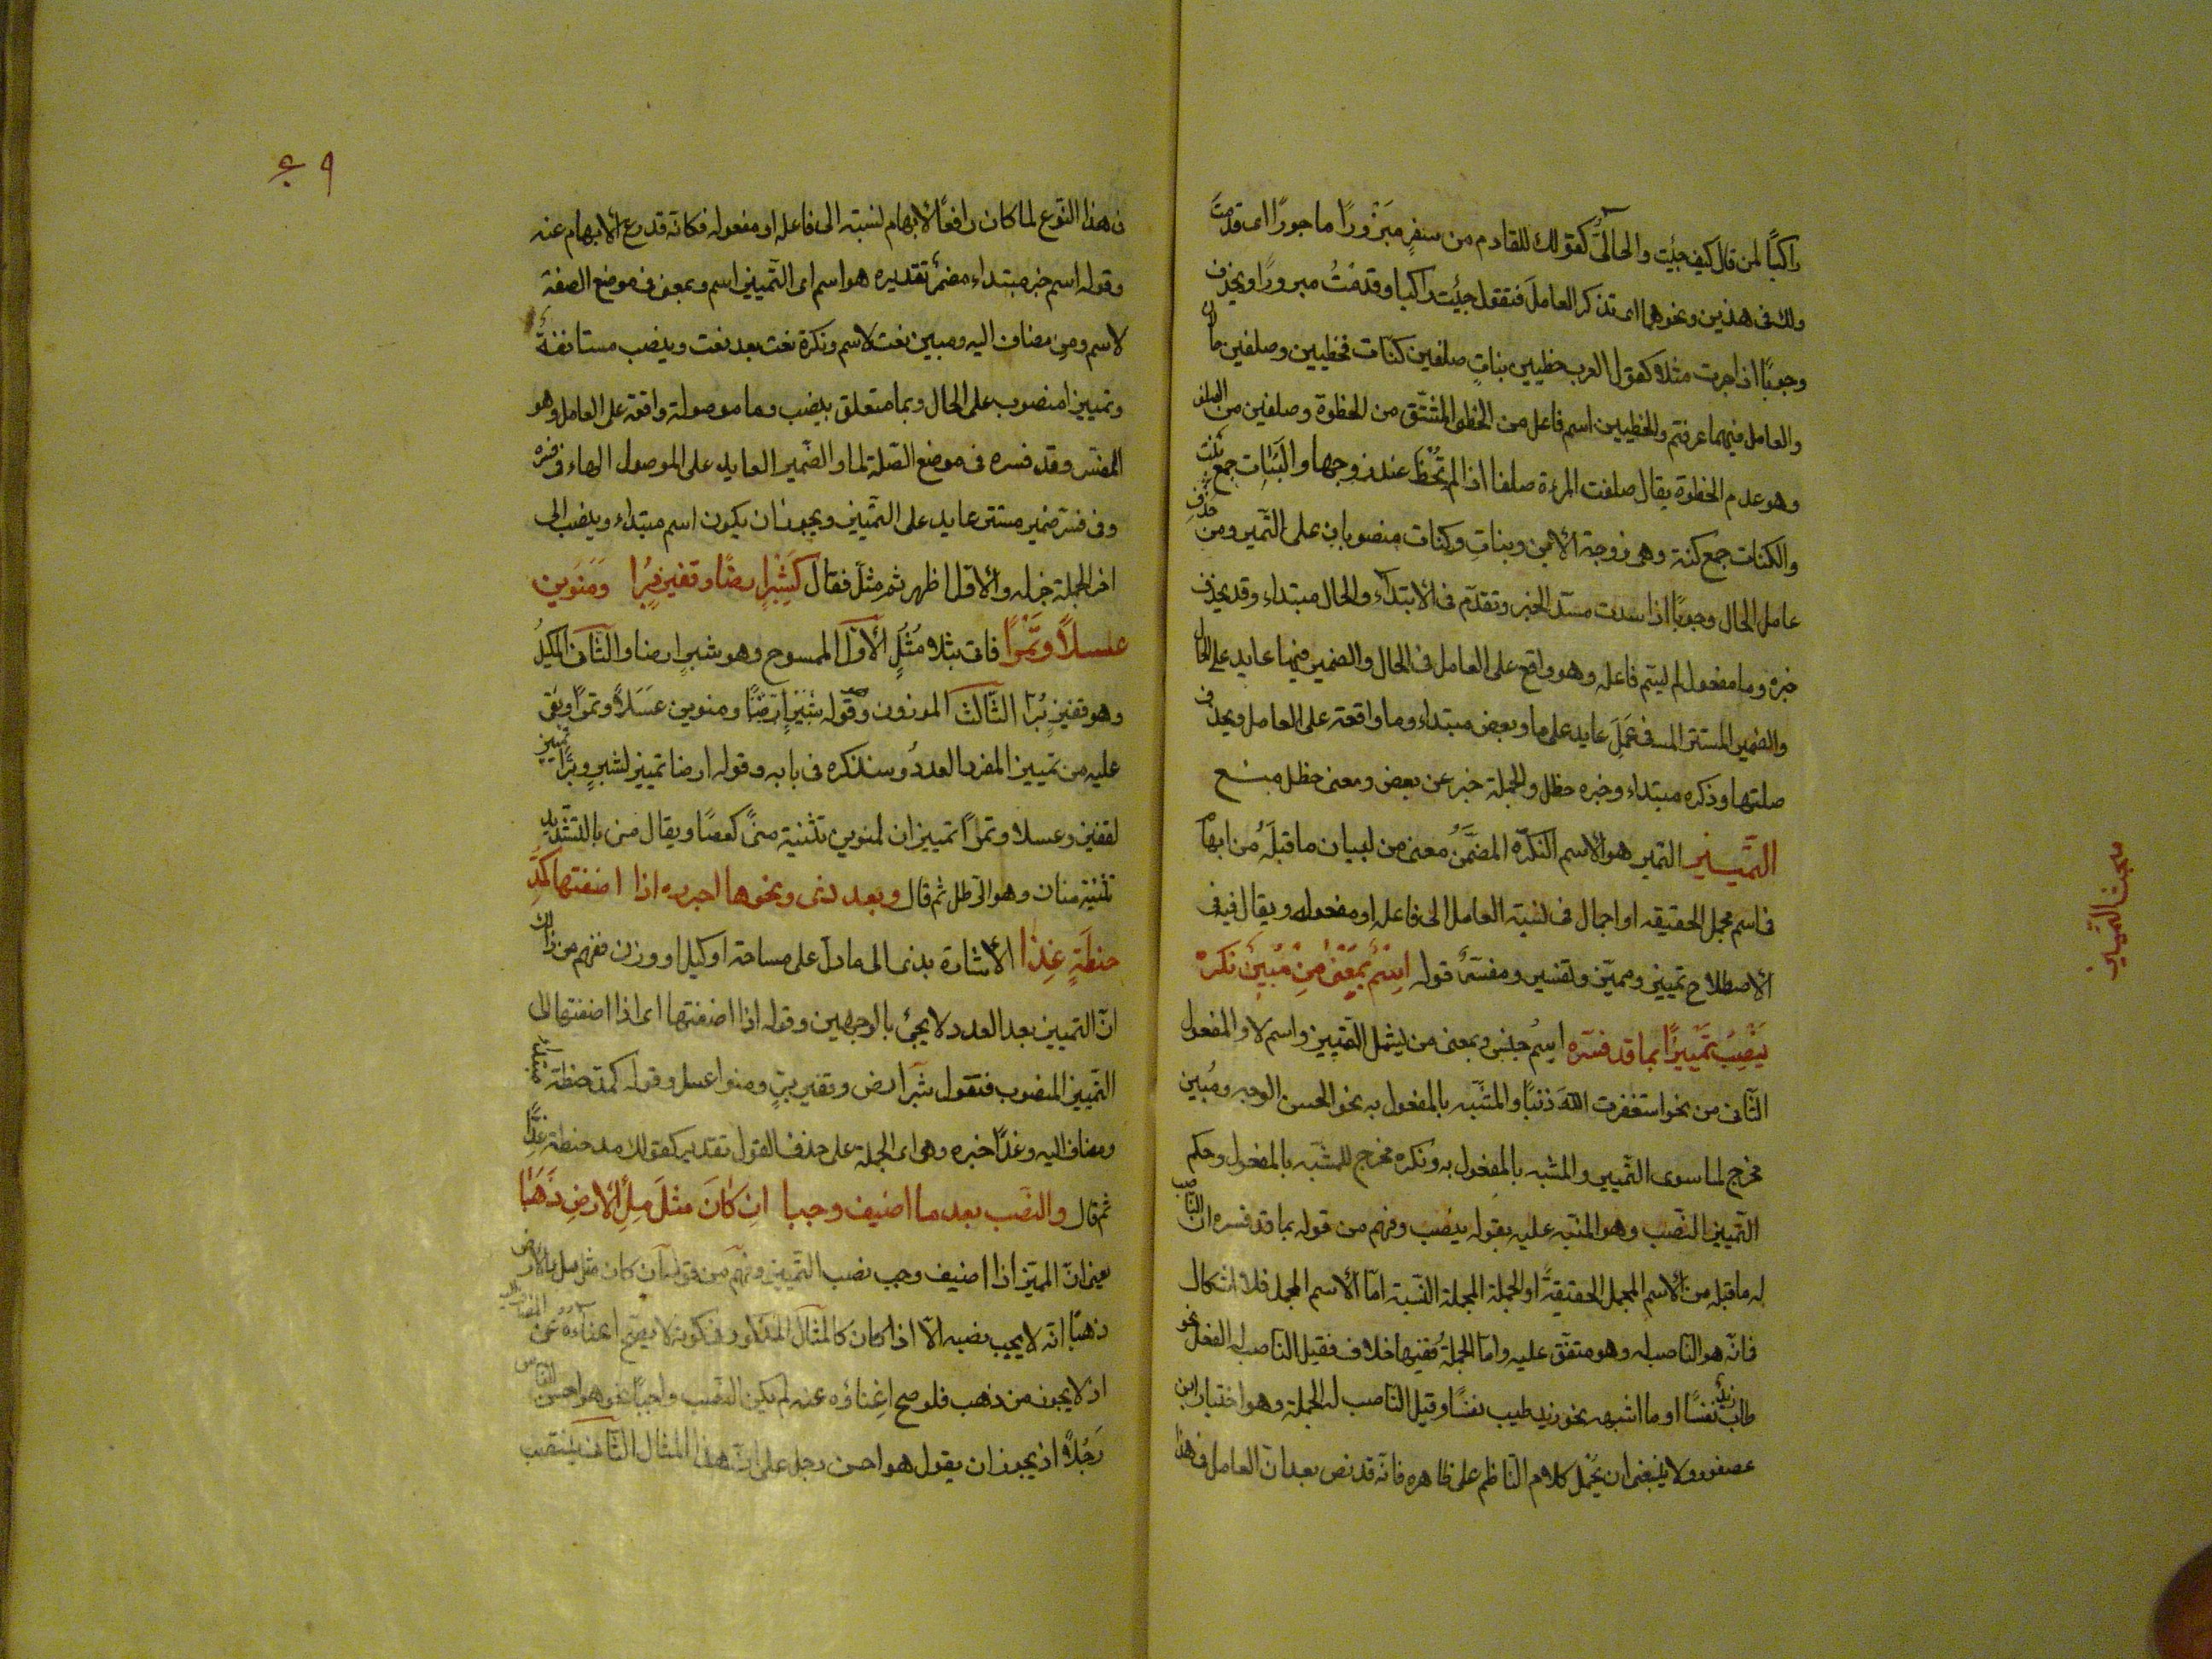 راكبًا لمن قال كيف جئت والحاليّ كقولك للقادم من سفرٍ مبرورًا ماجورًا اى قدمت
ولك فى هذين ونحوهما اى تذكر العامل فتقول جئت راكبا وقدمتُ مبرورًا ويحذف
وجوبًا اذا جرت مثلا كقول العرب حظيين بناتٍ صلفين كنّات فحظيين وصلفين حال
والعامل فيهما عرفتم والحظيين اسم فاعل من الحظو المشتق من الحظوة وصلفين من الصلف
وهو عدم الحظوة يقال صلفت المرءة صلفا اذا لم تحظ عند زوجها والبنات جمع بنت
والكنات جمع كنة وهى زوجة الابن وبناتٍ وكنات منصوبان على التّميز ومن حذف
عامل الحال وجوبًا اذا سدت مسدّ الخبر وتقدّم فى الابتداء والحال مبتداء وقد يحذف
خبره وما مفعول لم يسم فاعله وهو واقع على العامل فى الحال والضمير فيها عايد على الحال
والضمير المستتر فى عمل عايد على ما وبعض مبتداء وما واقعة على العامل ويحذف
صلتها وذكره مبتداء وخبره حظل والجملة خبر عن بعض ومعنى حظل منع
التّمييز التميز هو الاسم النكرة المضمّن معنى من لبيان ما قبله من ابهام
فى اسم مجمل الحقيقه او اجمال فى نسبة العامل الى فاعله او مفعوله ويقال فيه فى
الاصطلاح تمييز ومميّز وتفسير ومفسّر قوله اسم بمعنى من مبين نكره
ينصب تمييزًا بما قد فسّره اسمُ جنس وبمعنى من يشمل التمييز واسم لا والمفعول
الثّانى من نحو استغفرت الله ذنبًا والمشبّه بالمفعول به نحو الحسن الوجه ومُبين
مخرج لما سوى التّمييز والمشبه بالمفعول به ونكره مخرج للمشبّه بالمفعول وحكم
التّمييز النّصب وهو المنبّه عليه بقوله ينصب وفهم من قوله بما قد فسره ان الناصب
له ما قبله من الاسم المجمل الحقيقةً او الجملة المجملة النّسبة امّا الاسم المجمل فلا اشكال
فانّه هو النّاصب له وهو متفق عليه وامّا الجملةُ ففيها خلاف فقيل الناصب له الفعل نحو
طاب زيدٌ نفسًا او ما اشبهه نحو زيد طيب نفسًا وقيل النّاصب له الجملة وهو اختيار ابن
عصفور ولا ينبغى ان يحمل كلام النّاظم على ظاهره فانّه قد نص بعد ان العامل فى هذا
مبحث التمييز
٤٩
ن هذا النّوع لما كان رافعًا لابهام نسبته الى فاعله او مفعوله فكانه قد رفع الابهام عنه
وقوله اسم خبر مبتداء مضمر تقديره هو اسم اى التّمييز اسم وبمعنى فى موضع الصفة
لاسم ومن مضاف اليه ومبين نعت لاسم ونكرة نعت بعد نعت وينصب مستانفة
وتمييزا منصوب على الحال وبما متعلق بينصب وما موصولة واقعة على العامل وهو
المفسّر وقد فسره فى موضع الصّلة لما والضّمير العايد على الموصول الهاء فى فسره
وفى فسّر ضمير مستتر عايد على التّمييز ويجوز ان يكون اسم مبتداء وينصب الى
اخر الجملة خبر له والاوّل اظهر ثم مثلَ فقال كشبرٍ ارضًا وقفيزٍ بُرّا ومنوين
عسلاً وتمرًا فاتى بثلا مُثُلٍ الاول الممسوح وهو شبرٍ ارضا والثّانى المكيل
وهو قفيزٍ بُرّا الثّالث الموزون وهو قوله شبرٍ ارضًا ومنوين عسلاً وتمرًا وبقى
عليه من تمييز المفرد العدد وسنذكره فى بابه وقوله ارضا تمييز لشبرٍ وبرًّا تمييز
لقفيز وعسلا وتمرًا تمييزان لمنوين تثنية منًّ كعصًا ويقال من بالتشديد
تثنية منان وهو الرّطل ثم قال وبعد ذى ونحوها اجرره اذا اضفتها كمدِّ
حنطةٍ غِذا الاشارة بذى الى ما دلّ على مساحة او كيل او وزن ففهم من ذلك
انّ التمييز بعد العدد لا يجئ بالوجهين وقوله اذا اضفتها اى اذا اضفتها الى
التّمييز المنصوب فتقول شبر ارض وقفيز برٍّ ومنوا عسل وقوله كمد حنطة مبتداء
ومضاف اليه وغذًا خبره وهى اى الجملة على حذف القول تقديره كقولك مد حنطة غذًا
ثم قال والنّصب بعد ما اضيف وجبا ان كان مثلَ مِلءِ الارضِ ذَهبَا
يعنى انّ المميّز اذا اضيف وجب نصب التّمييز وفهم من قوله ان كان مثل ملء الارض
ذهبًا انّه لا يجب نصبه الّا اذا كان كالمثال المذكور فى كونه لا يصحّ اغناؤه عن المضاف اليه
اذ لا يجوز من ذهب فلو صح اغناؤه عنه لم يكن النّصب واجبًا نحو هو احسن الناس
رَجُلاً اذ يجوز ان يقول هو احسن رجل على ان هذا المثال الثّانى ينتصب